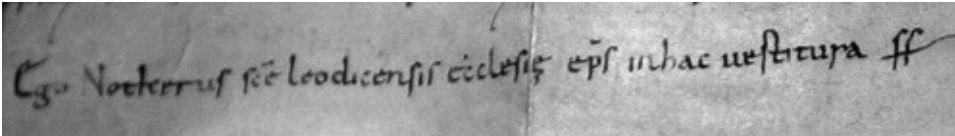 Ego Notkerus scē leodicensis ęcclesię ep̄s inhac uestitura ss